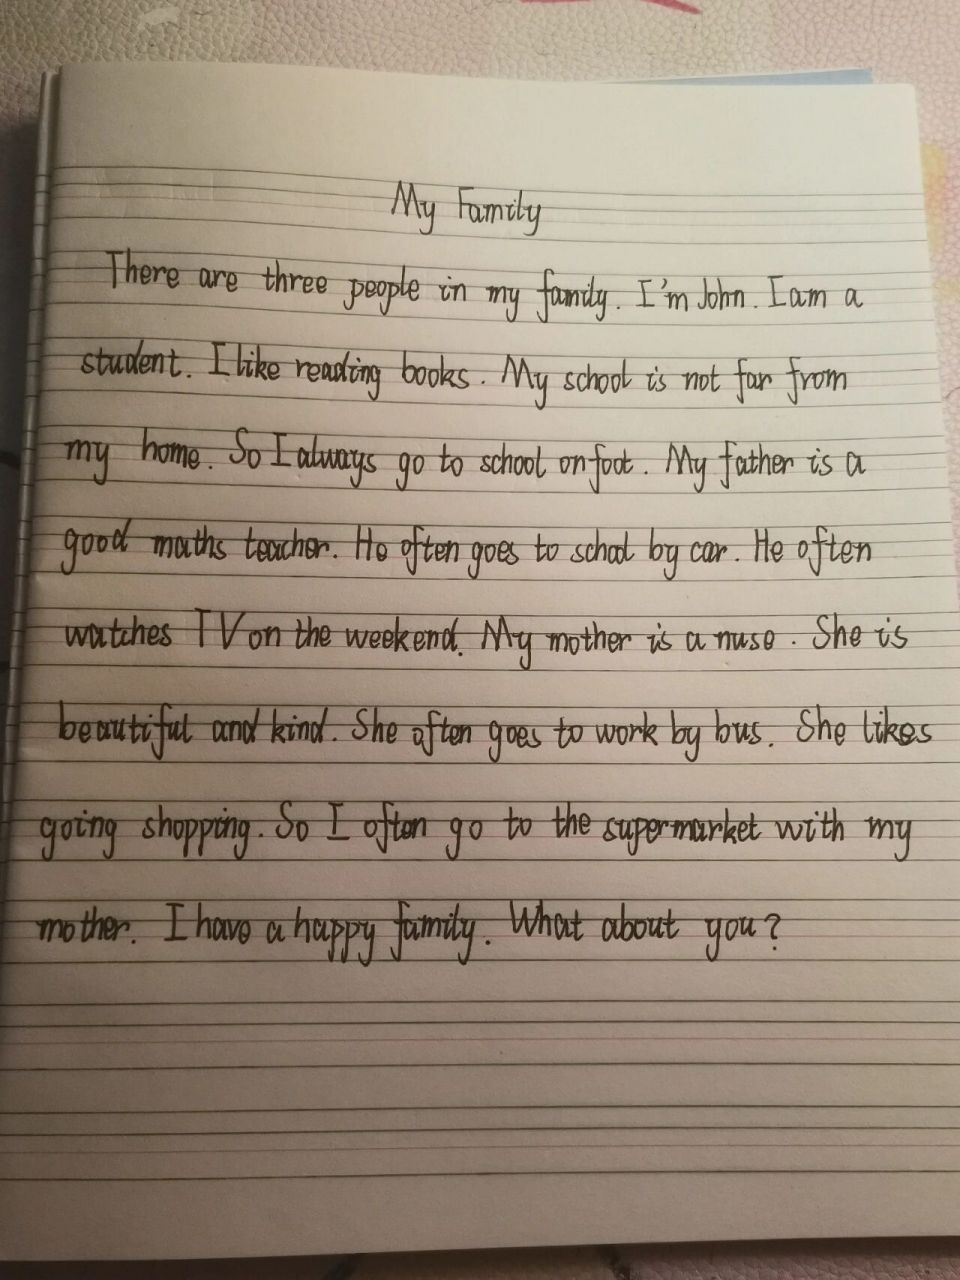 My Family
There are three people in my family. I'm John. I am a
student. I like reading books. My school is not far from
my home. So I always go to school on foot. My father is a
good maths teacher. He often goes to school by car. He often
watches TV on the weekend. My mother is a nuse. She is
beautiful and kind. She often goes to work by bus. She likes
going shopping. So I often go to the supermarket with my
mother. I have a happy family. What about you?